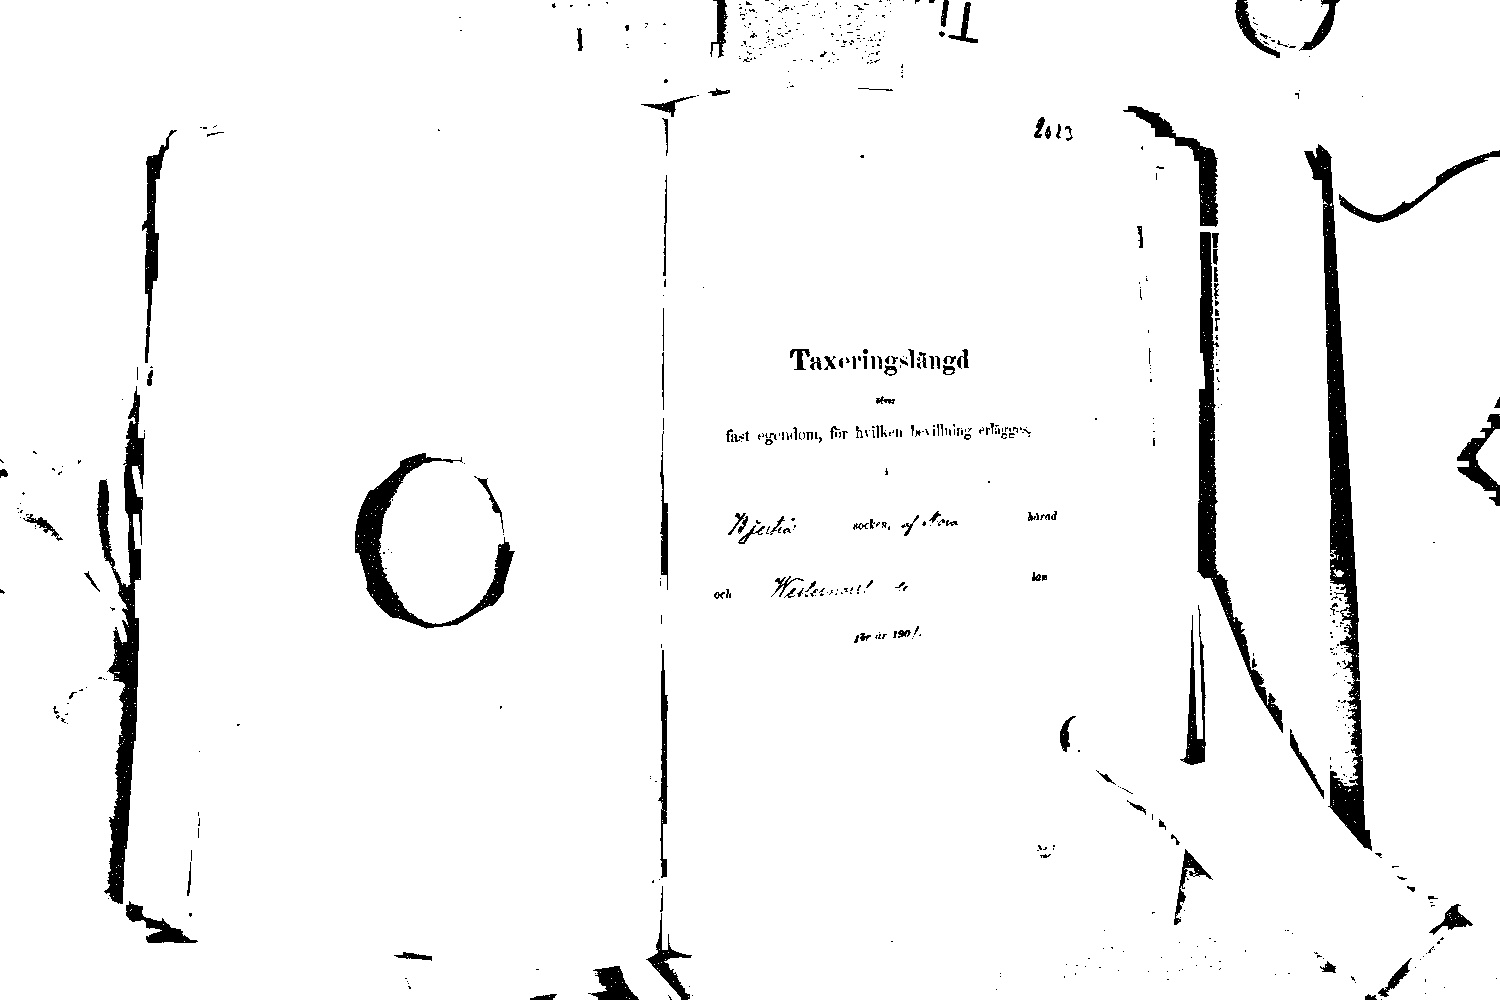 2023
Taxeringslängd
öfver
fast egendom, för hvilken bevillning erlägges,
i
Bjertrå socken, af Nora härad
och Westernorrl län
för år 1901.